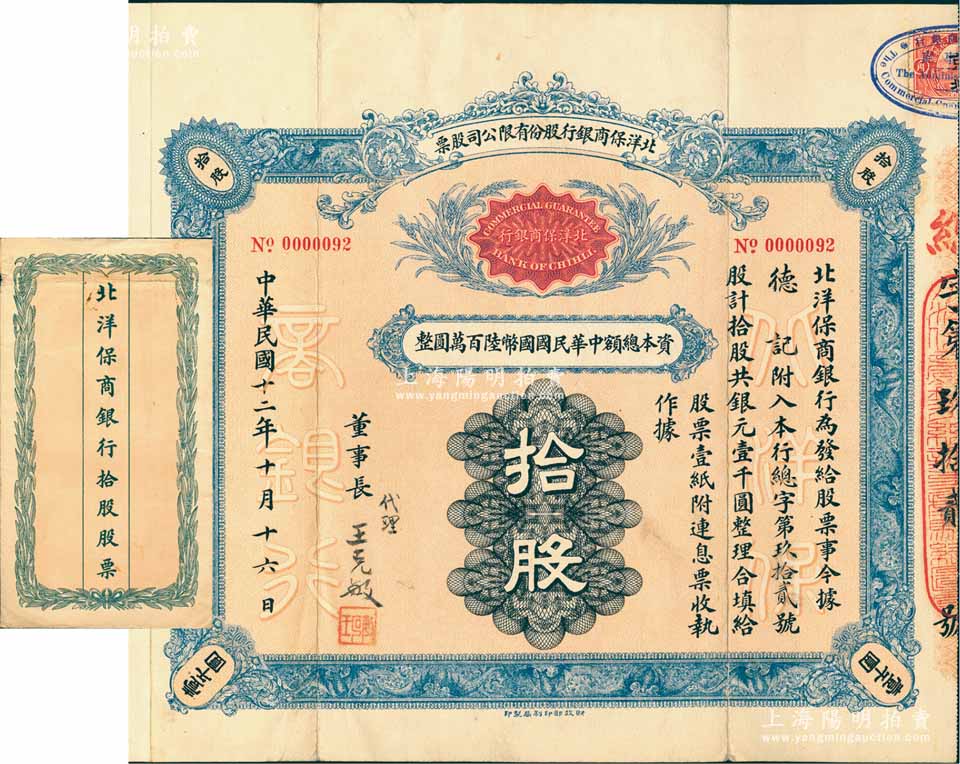 北洋保商銀行股份有限公司股票
拾股
票股
COMMERCIAL GUARANTEE
北洋保商銀行
BANK OF CHIHLI
No 0000092
No 0000092
資本總額中華民國國幣陸百萬圓整
北洋保商銀行為發給股票事今據
德記附入本行總字第玖拾貳號
股計拾股共銀元壹千圓整理合填給
股票壹紙附連息票收執
作據
拾股
董事長
代理
王克敏
中華民國十二年十月十六日
北洋保
商銀行
壹千圓
壹千圓
財政部印刷局製印
字第玖拾貳號
北洋保商銀行拾股股票
上海陽明拍賣
www.yangmingauction.com
上海陽明拍賣
yangmingauction.com